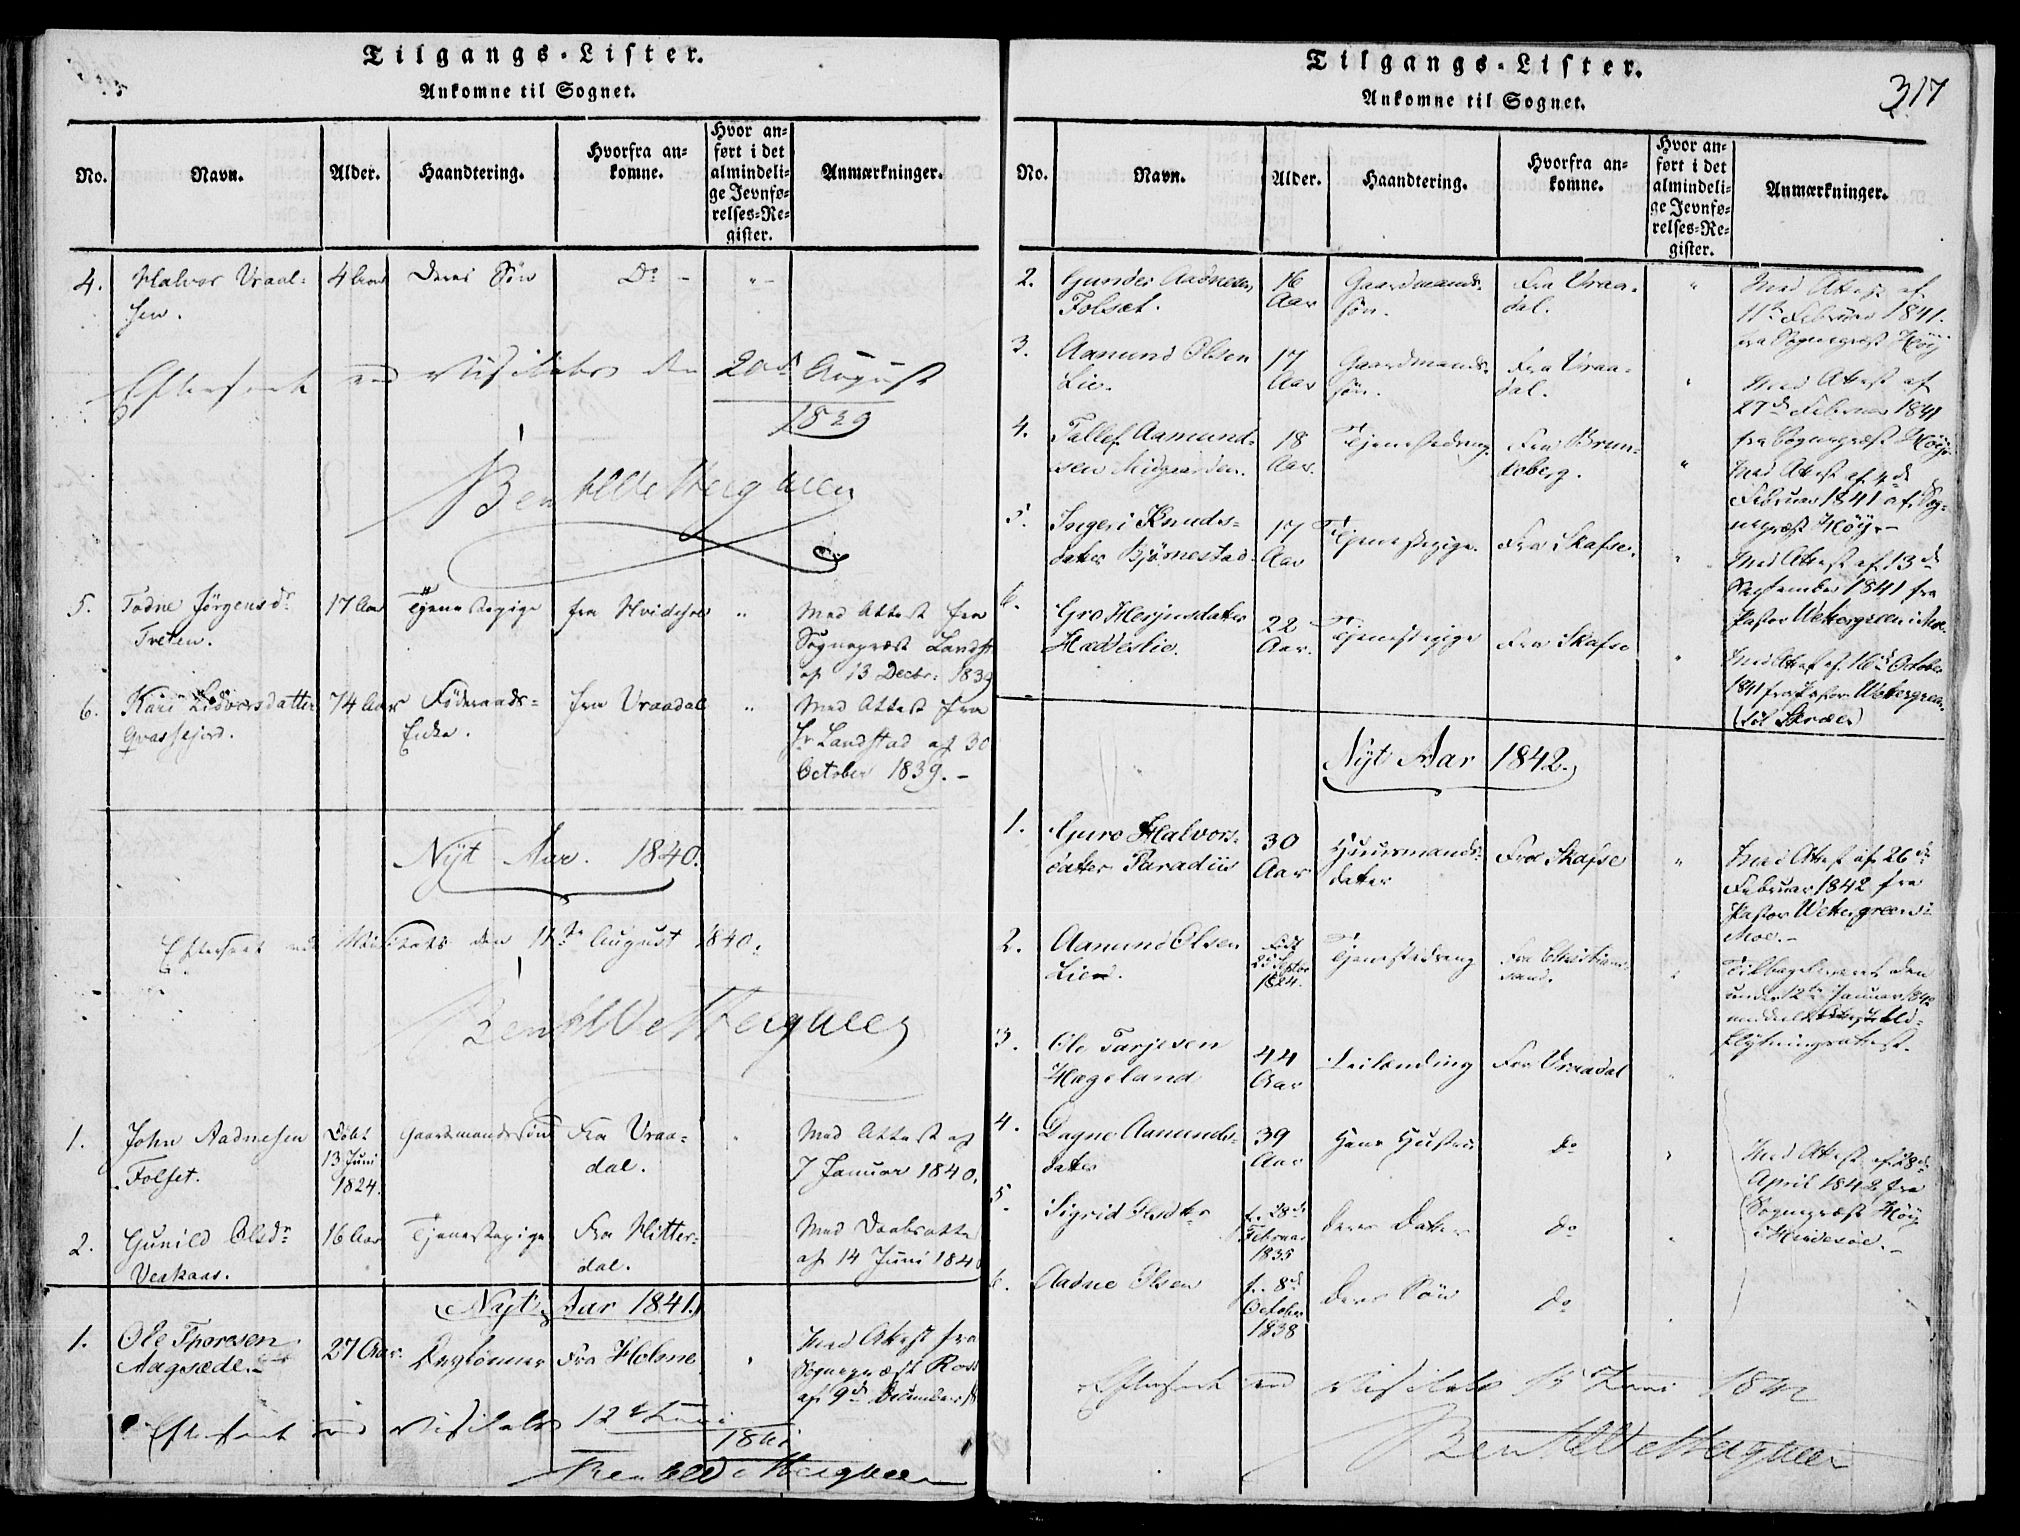 Tilgangs-Lister.
Ankomne til Sognet.
No.
Navn.
Alder.
Haandtering.
Hvorfra an-
komne.
Hvor an-
ført i det
almindeli-
ge Jevnfø-
relses-Re-
gister.
Anmærkninger.
4.
Halvor Vraal-
sen.
4 Aar
Deres Søn
Do -
"
Efterseet ved Visitats den 20de August
1839
Bent Wettergreen
5.
Jørgensdr
Treten.
17 Aar
Tjenestepige
fra Hvidesøe
"
Med Attest fra
Sognepræst Landst
af 13 Decbr: 1839
6.
Kari
Qvassefjord.
74 Aar
Føderaads-
Enke.
fra Vraadal
"
Med Attest fra
Hr Landstad af 30
October 1839. -
Nyt Aar. 1840.
Efterseet ved Visitats den 11te August 1840.
Bent Wettergreen
1.
John Aadnesen
Folset.
Døbt
13 Juni
1824.
Gaardmandssøn
Fra Vraa-
dal.
"
Med Attest af
7 Januar 1840.
2.
Gunild Olsdr
Veakaas.
16 Aar
Tjenestepige
Fra Hitter-
dal.
Med Daabsatte
af 14 Juni 184
Nyt Aar 1841.
1.
Ole Thoresen
Aagsæde.
27 Aar.
Fra Holsne
"
Med Attest fra
Sognepræst
af 9de December
Efterseet ved Visitats 12te Juni
1841
Bent Wettergreen
Tilgangs-Lister.
317
Ankomne til Sognet.
No.
Navn.
Alder.
Haandtering.
Hvorfra an-
komne.
Hvor an-
ført i det
almindeli-
ge Jevnfø-
relses-Re-
gister.
Anmærkninger.
2.
Gunder Aadnesen
Folsæt.
16
Aar
Gaardmands-
søn.
Fra Vraa-
dal.
"
Med Attest af
11te Februar 1841.
fra Sognepræst Høÿ
3.
Aamund Olsen
Lie.
17
Aar
Gaardmands-
søn.
Fra Vraa-
dal.
"
Med Attest af
27de Februar 1841
fra Sognepræst Høÿe
4.
Tallef Aamund-
sen Midgaarden.
18
Aar.
Tjenestedreng.
Fra Brun-
keberg.
"
Med Attest af 4de
Februar 1841 af Sog-
nepræst Høÿe-
5.
Ingeri Knuds-
datter Bjørnestad.
17
Aar
Tjenestepige.
Fra Skafse.
"
Med Attest af 13de
September 1841 fra
Pastor Wettergreen i Moe.
6.
Gro Herjusdatter
Haddeslie.
22
Aar.
Tjenestepige
Fra Skafse
"
Med Attest af 16de October
1841 fra Pastor Wettergreen.
Nyt Aar 1842.
1.
Guro Halvors-
datter Paradiis
30
Aar
Huusmands-
datter
Fra Skafse
"
Med Attest af 26de
Februar 1842 fra
Pastor Wettergreen i
Moe.-
2.
Aamund Olsen
Lie.
Født
1824.
Tjenestedreng
Fra Christian-
sand.
"
Tilbageleveret den
under 12te Januar 1842
meddeelte Ud-
flytningsattest.
3.
Ole Tarjesen
Hægeland
44
Aar
Leilending
Fra Vraadal
"
4.
Dagne Aamunds-
datter
39
Aar
Hans Hustru
do
"
Med Attest af 28de
April 1842 fra
Sognepræst Høÿ
i Hvidesøe.-
5.
Sigrid Olsdtr
f. 28de
Februar
1835
Deres Datter
do
"
6.
Aadne Olsen
f. 8de
October
1838
Deres Søn
do
Efterseet ved Visitats Juni 1842
Bent Wettergreen